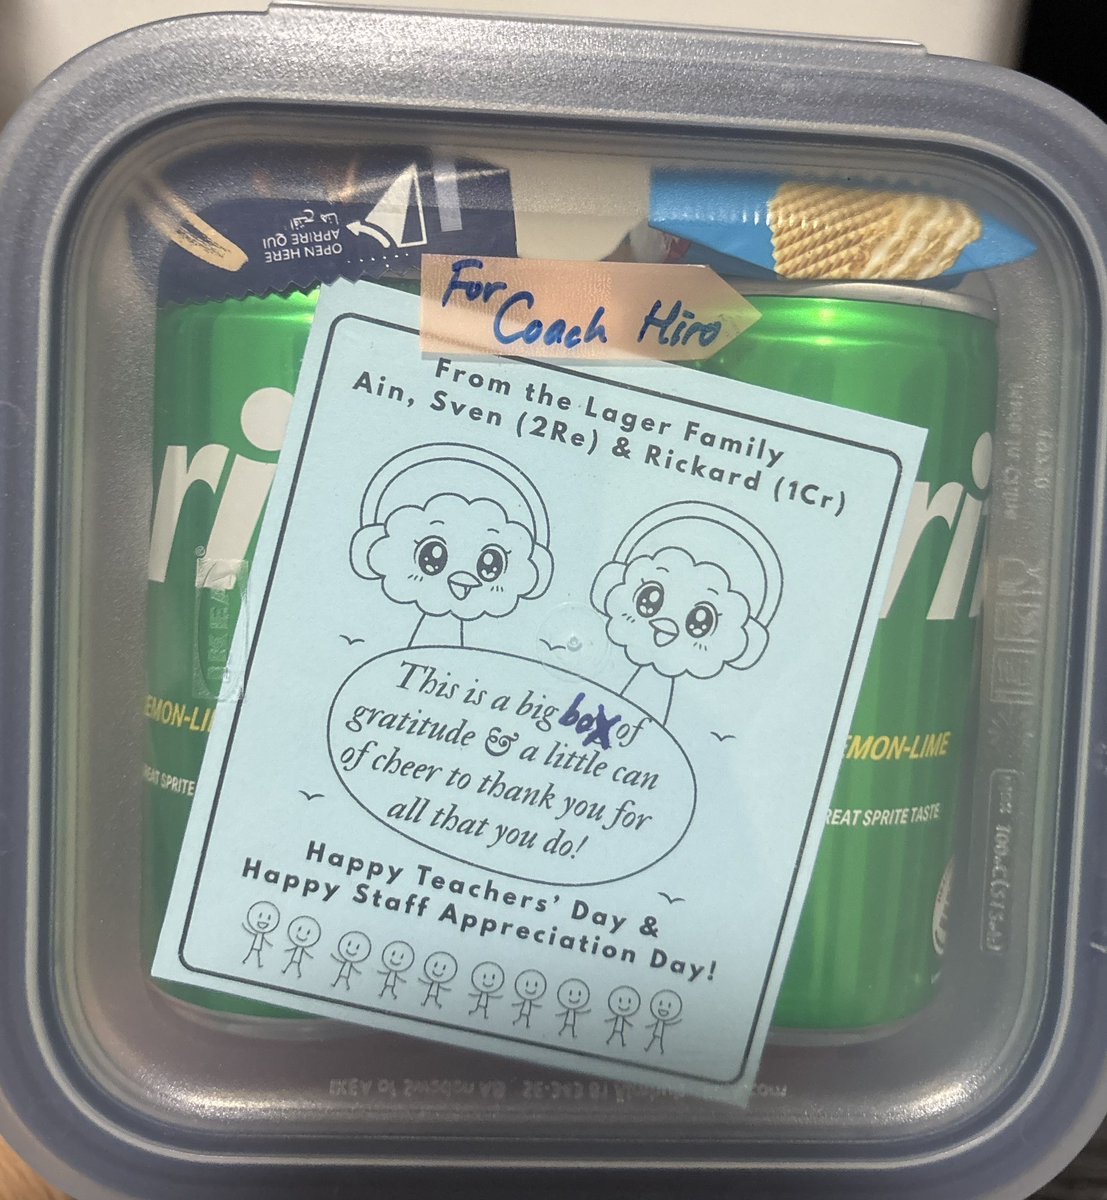 OPEN HERE
APRIRE QUI
For
Coach Hiro
From the Lager Family
Ain, Sven (2Re) & Rickard (1Cr)
This is a big box of
gratitude & a little can
of cheer to thank you for
all that you do!
Happy Teachers' Day &
Happy Staff Appreciation Day!
ri
EMON-LI
EAT SPRITE
IKEA
ri
EMON-LIME
REAT SPRITE TASTE
IKEA of Sweden AB